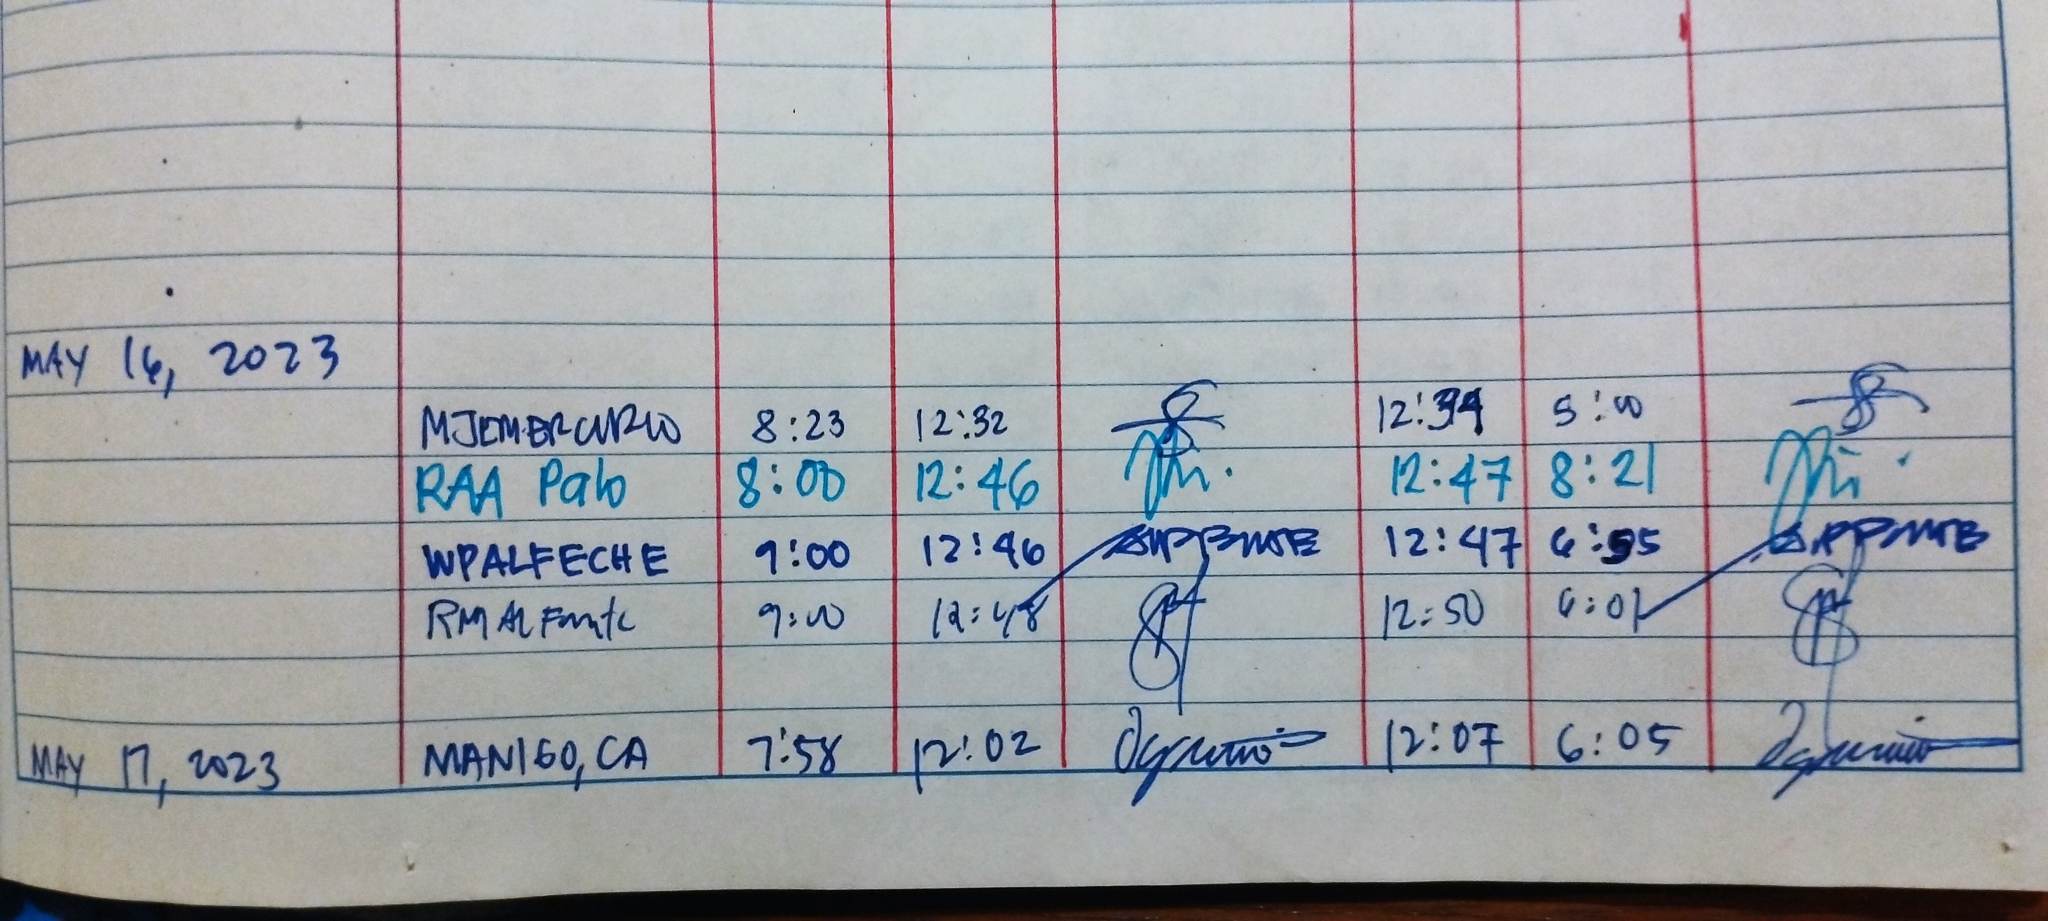 MAY 16, 2023
8:23 12:32 12:34 5:00
RAA Palo 8:00 12:46 12:47 8:21
WPALFECHE 9:00 12:46 12:47 6:55
9:00 12:48 12:50 6:01
MAY 17, 2023 MANIGO, CA 7:58 12:02 12:07 6:05